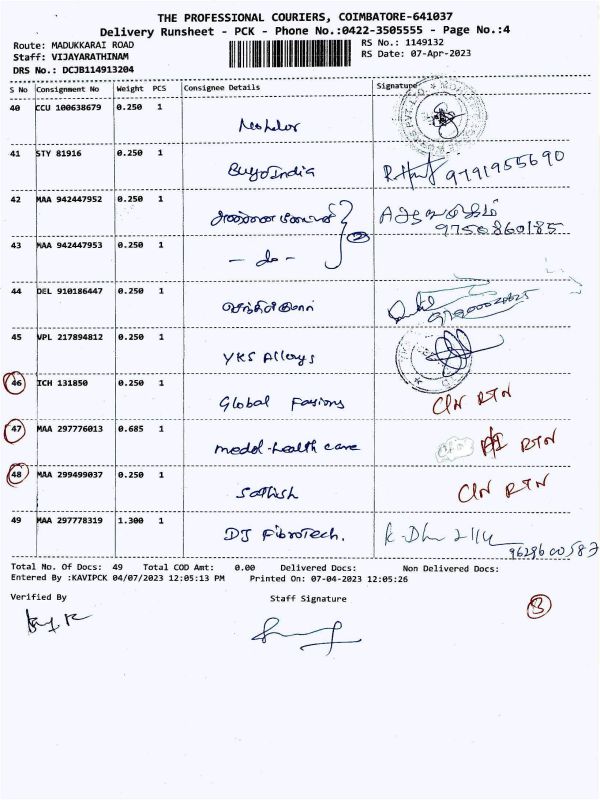 THE PROFESSIONAL COURIERS, COIMBATORE-641037
Delivery Runsheet - PCK - Phone No.:0422-3505555 - Page No.:4
Route: MADUKKARAI ROAD
RS No.: 1149132
Staff: VIJAYARATHINAM
RS Date: 07-Apr-2023
DRS No.: DCJB114913204
S No Consignment No Weight PCS Consignee Details Signature
40 CCU 100638679 0.250 1
41 STY 81916 0.250 1 BuyoIndia 9791955690
42 MAA 942447952 0.250 1 2 9750860185
43 MAA 942447953 0.250 1 - do -
44 DEL 910186447 0.250 1 செந்தில்குமார்
45 VPL 217894812 0.250 1 YKS Alloys
46 ICH 131850 0.250 1 Global Fasions C/N RTN
47 MAA 297776013 0.685 1 medol-health care RTN
48 MAA 299499037 0.250 1 Sathish C/N RTN
49 MAA 297778319 1.300 1 DJ FibroTech. 9629600587
Total No. Of Docs: 49 Total COD Amt: 0.00 Delivered Docs: Non Delivered Docs:
Entered By :KAVIPCK 04/07/2023 12:05:13 PM Printed On: 07-04-2023 12:05:26
Verified By Staff Signature
3